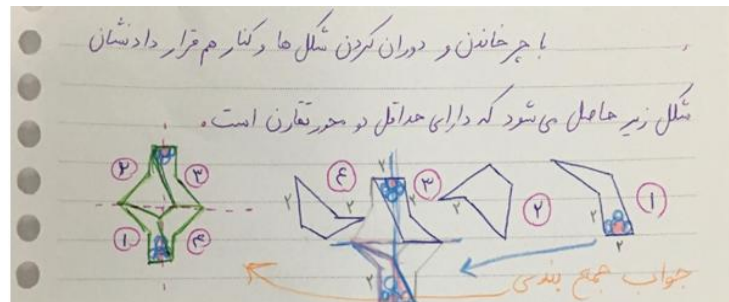 با چرخاندن و دوران کردن شکل ها و کنار هم قرار دادنشان
شکل زیر حاصل می‌شود که دارای حداقل دو محور تقارن است.
۱ ۲ ۲
۲ ۲
۳ ۲ ۲ ۲
۴ ۲ ۲
۲ ۳
۱ ۴
جواب جمع بندی